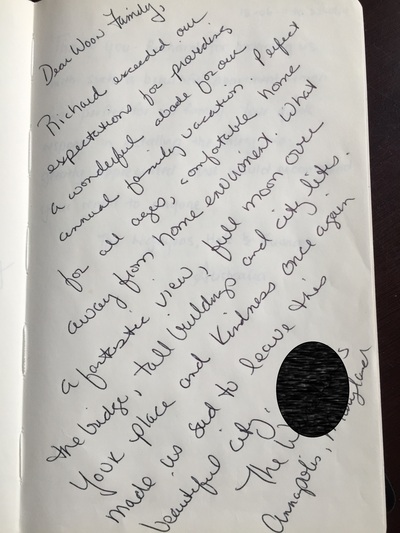 Dear Woov Family,
Richard exceeded our
expectations for providing
a wonderful abode for our
annual family vacation. Perfect
for all ages, comfortable home
away from home enviroment. What
a fantastic view, full moon over
the bridge, tall buildings and city lites.
Your place and kindness once again
made us sad to leave this
beautiful city.
The
Annapolis, Maryland